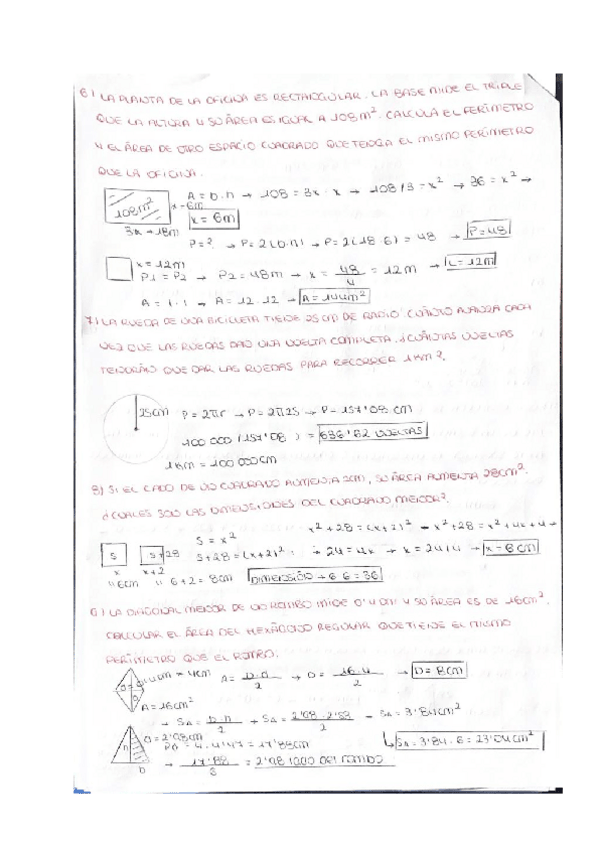 6) LA PLANTA DE LA OFICINA ES RECTANGULAR. LA BASE MIDE EL TRIPLE
QUE LA ALTURA Y SU ÁREA ES IGUAL A 108m². CALCULA EL PERÍMETRO
Y EL ÁREA DE OTRO ESPACIO CUADRADO QUE TENGA EL MISMO PERÍMETRO
QUE LA OFICINA.
108m² x=6m A = b·h → 108 = 3x · x → 108/3 = x² → 36 = x² →
3x → 18m x = 6m
P = ? → P = 2(b·h) → P = 2(18·6) = 48 → P = 48
x = 12m
P1 = P2 → P2 = 48m → x = 48/4 = 12m → L = 12m
A = l·l → A = 12·12 → A = 144m²
7) LA RUEDA DE UNA BICICLETA TIENE 25 CM DE RADIO. CUÁNTO AVANZA CADA
VEZ QUE LAS RUEDAS DAN UNA VUELTA COMPLETA. ¿CUÁNTAS VUELTAS
TENDRÁN QUE DAR LAS RUEDAS PARA RECORRER 1KM?.
25cm P = 2πr → P = 2π25 → P = 157'08 cm
100 000 (157'08) = 636'62 VUELTAS
1km = 100 000cm
8) SI EL LADO DE UN CUADRADO AUMENTA 2cm, SU ÁREA AUMENTA 28cm².
¿CUÁLES SON LAS DIMENSIONES DEL CUADRADO MENOR?.
S = x² x² + 28 = (x+2)² → x² + 28 = x² + 4x + 4 →
S S+28 S + 28 = (x+2)² → 24 = 4x → x = 24/4 → x = 6cm
x x+2
6cm 6+2 = 8cm DIMENSIÓN → 6·6 = 36
LA DIAGONAL MENOR DE UN ROMBO MIDE 0'4 dm Y SU ÁREA ES DE 16cm².
CALCULAR EL ÁREA DEL HEXÁGONO REGULAR QUE TIENE EL MISMO
PERÍMETRO QUE EL ROMBO.
= 4cm A = D·d/2 → D = 16·4/2 → D = 8cm
A = 16cm²
→ SA = b·h/2 → SA = 2'98·2'58/2 → SA = 3'84cm²
2'98cm
4·4'47 = 17'88cm SA = 3'84·6 = 23'04cm²
h b → 17'88/6 = 2'98 lado del rombo